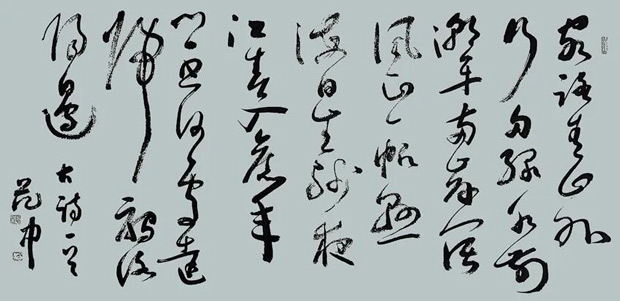 客路青山外
行舟绿水前
潮平两岸阔
风正一帆悬
海日生残夜
江春入旧年
乡书何处达
归雁洛
阳边
古诗一首